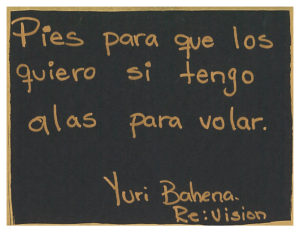 Pies para que los
quiero si tengo
alas para volar.
Yuri Bahena.
Re:vision